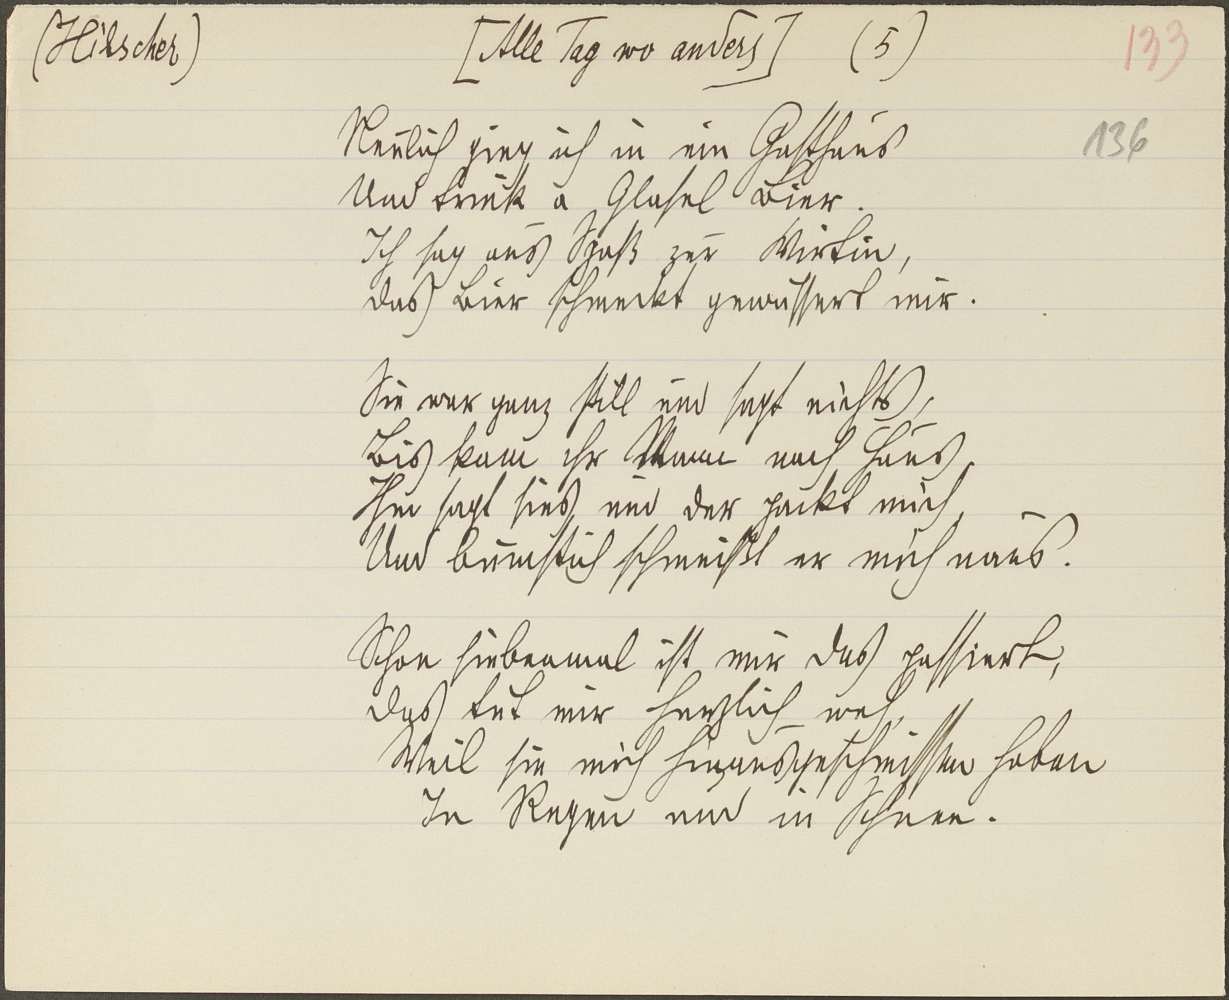 (Hilscher) [Alle Tag wo anders] (5) 133
136
Neulich gieng ich in ein Gasthaus
Und trink a Glasel Bier.
Ich sag aus Spaß zur Wirtin,
das Bier schmeckt gewässert mir.
Sie war ganz still und sagt nichts,
Bis kam ihr Mann nach Haus,
Ihm sagt sies und der packt mich,
Und bumstich schmeißt er mich naus.
Schon siebenmal ist mir das passiert,
das tut mir herzlich weh,
Weil sie mich hinausgeschmissen haben
In Regen und in Schnee.